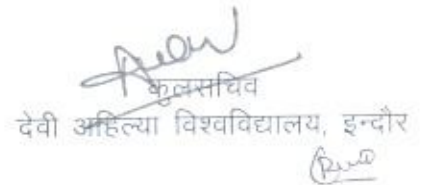 कुलसचिव
देवी अहिल्या विश्वविद्यालय, इन्दौर